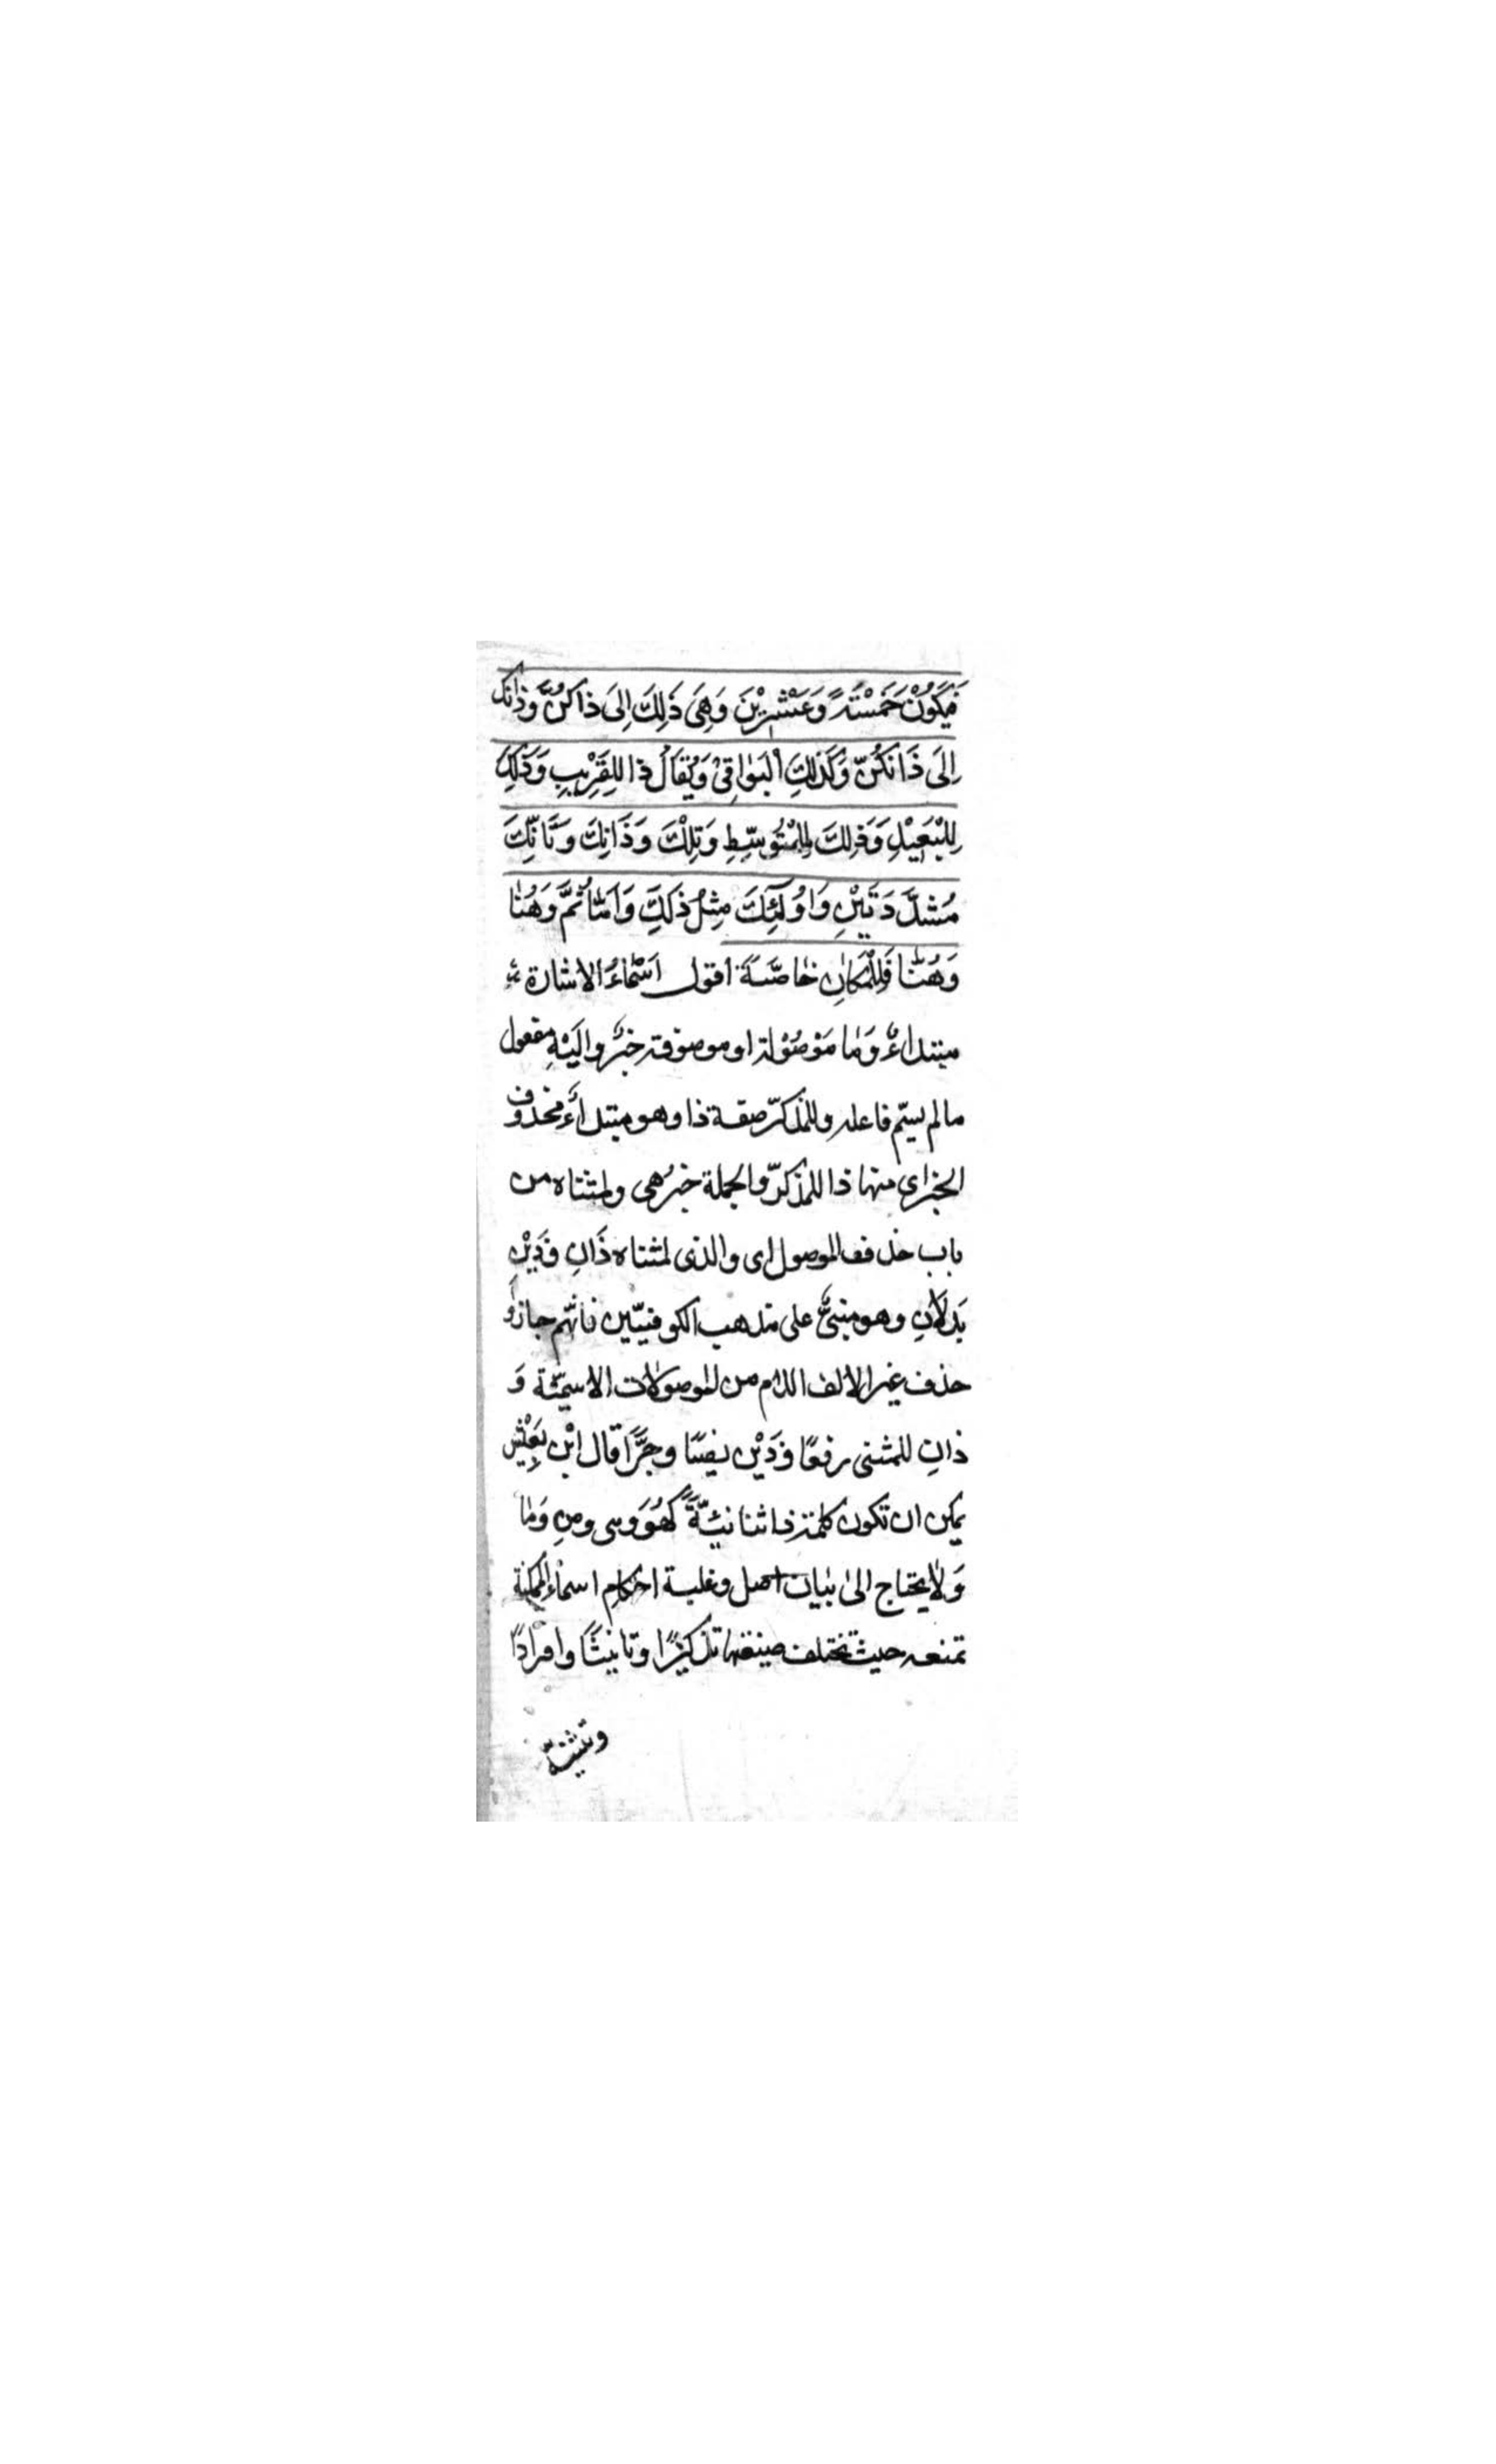 فَيَكُوْنُ خَمْسَةً وَعِشْرِيْنَ وَهِيَ ذَلِكَ اِلَى ذاكُنَّ وَذانِكَ
اِلَى ذَانِكُنَّ وَكَذٰلِكَ الْبَوٰاقِىْ وَيُقَالُ ذا لِلْقَرِيْبِ وَذَلِكَ
لِلْبَعِيْدِ وَذٰلِكَ لِلْمُتَوَسِّطِ وَتِلْكَ وَذَانِكَ وَتَانِّكَ
مُشَدَّدَتَيْنِ وَاُولَٰئِكَ مِثْلُ ذَلِكَ وَاَمَّا ثُمَّ وَهُنٰا
وَهُنّٰا فَلِلْمَكَانِ خٰاصَّةً اقول اَسْمٰاءُ الاشارة
مبتداءٌ وَمٰا مَوْصُوْلة او موصوفة خبرٌ واِلَيْهِ مفعول
مالم يسمّ فاعله وللمذكرّ صفة ذا وهو مبتداءٌ محذوف
الخبر اى منها ذا للمذكرّ والجملة خبرُ هى ولمثناه من
باب حذف الموصول اى والذى لمثناه ذَانِ وَذَيْنِ
بَدلَانِ وهو مبنىٌّ على مذهب الكوفيّين فانّهم جازوُا
حذف غير الالف اللام من الموصولات الاسميّة وَ
ذانِ للمثنى رفعًا وذَيْن نصبًا وجرًّا قال ابْن يَعِيْش
يمكن ان تكون كلمة ذا ثنائيّةً كَهُوَ وهى ومنِ وَمٰا
وَلٰا يحتاج الىٰ بيٰان اصل وغلبة احكام اسماء المتمكنة
تمنعه حيث تختلف صيغتها تذكيرًا وتانيثًا وافرادًا
وتثنيةً